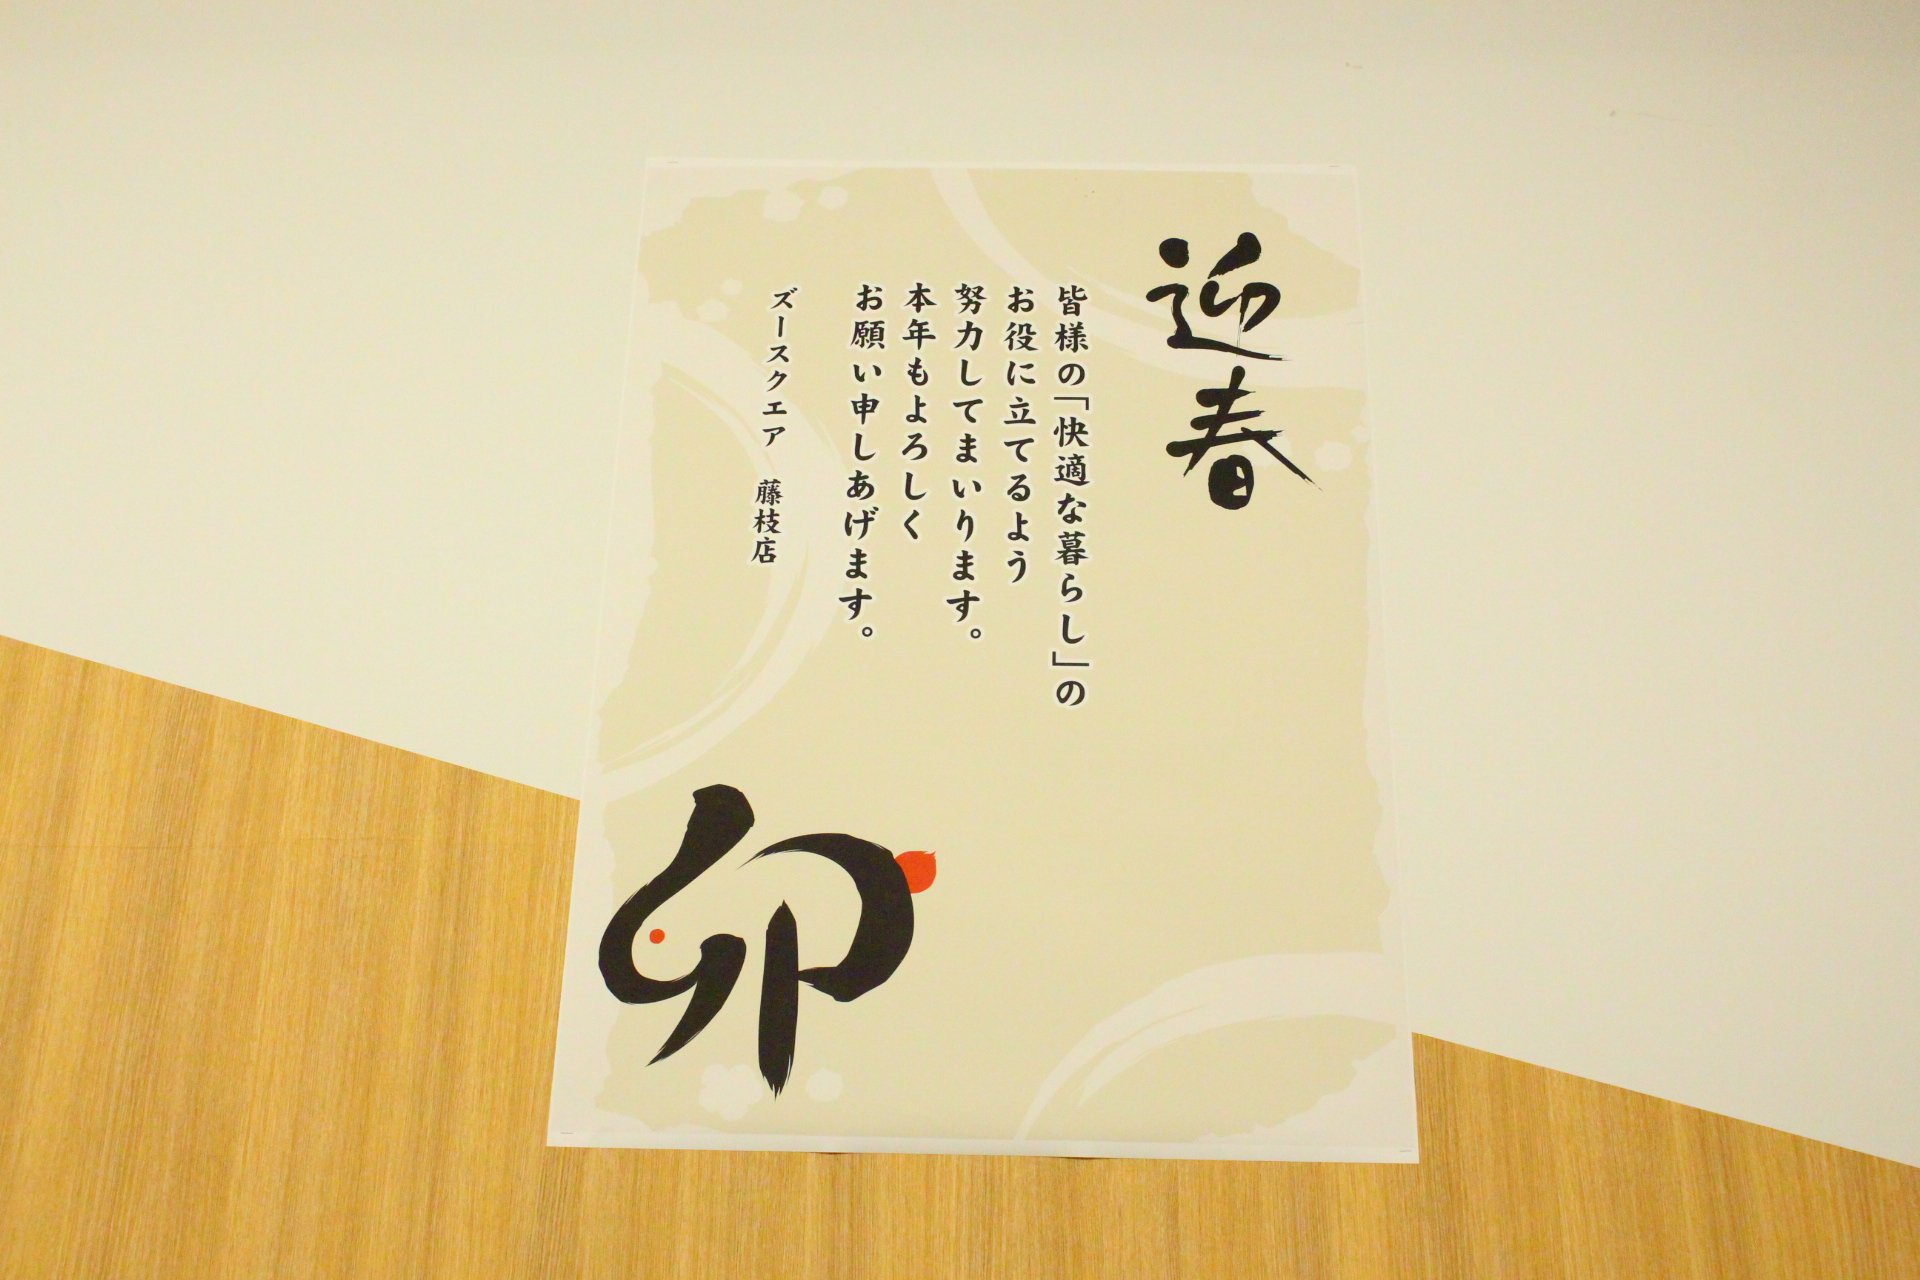 迎春
皆様の「快適な暮らし」の
お役に立てるよう
努力してまいります。
本年もよろしく
お願い申しあげます。
ズースクエア　藤枝店
卯